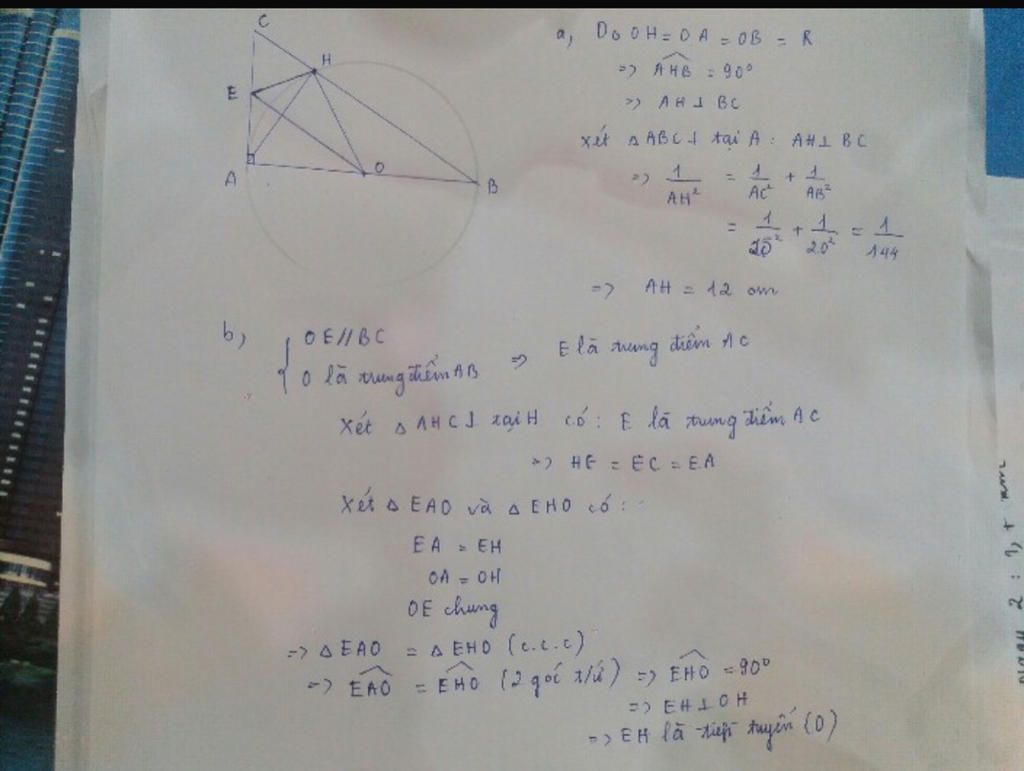 C
H
E
A
O
B
a, Do OH = OA = OB = R
=> AHB = 90°
=> AH ⊥ BC
Xét △ABC ⊥ tại A : AH ⊥ BC
=> 1/AH² = 1/AC² + 1/AB²
= 1/15² + 1/20² = 1/144
=> AH = 12 cm
b, { OE // BC
O là trung điểm AB => E là trung điểm AC
Xét △ AHC ⊥ tại H có : E là trung điểm AC
=> HE = EC = EA
Xét △ EAO và △ EHO có :
EA = EH
OA = OH
OE chung
=> △ EAO = △ EHO (c.c.c)
=> EAO = EHO (2 góc t/ứ) => EHO = 90°
=> EH ⊥ OH
=> EH là tiếp tuyến (O)
2 : 1,+